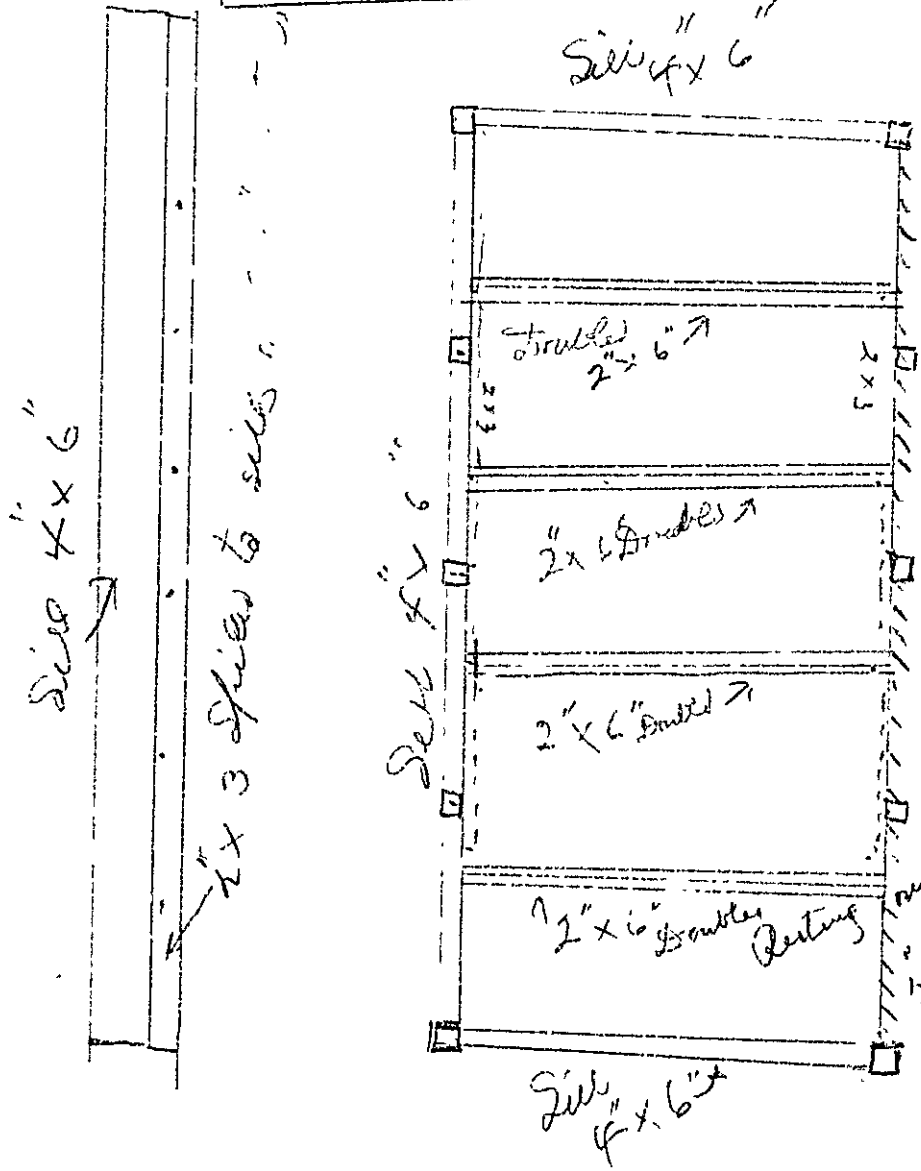 Sill 4" x 6"
Sill 4" x 6"
2" x 3 Spiked to sills
Doubled
2" x 6"
2 x 3
2 x 3
2" x 6 Doubled
Sill 4" x 6"
2" x 6" Doubled
2" x 6" Doubled Resting
Sill
4" x 6"